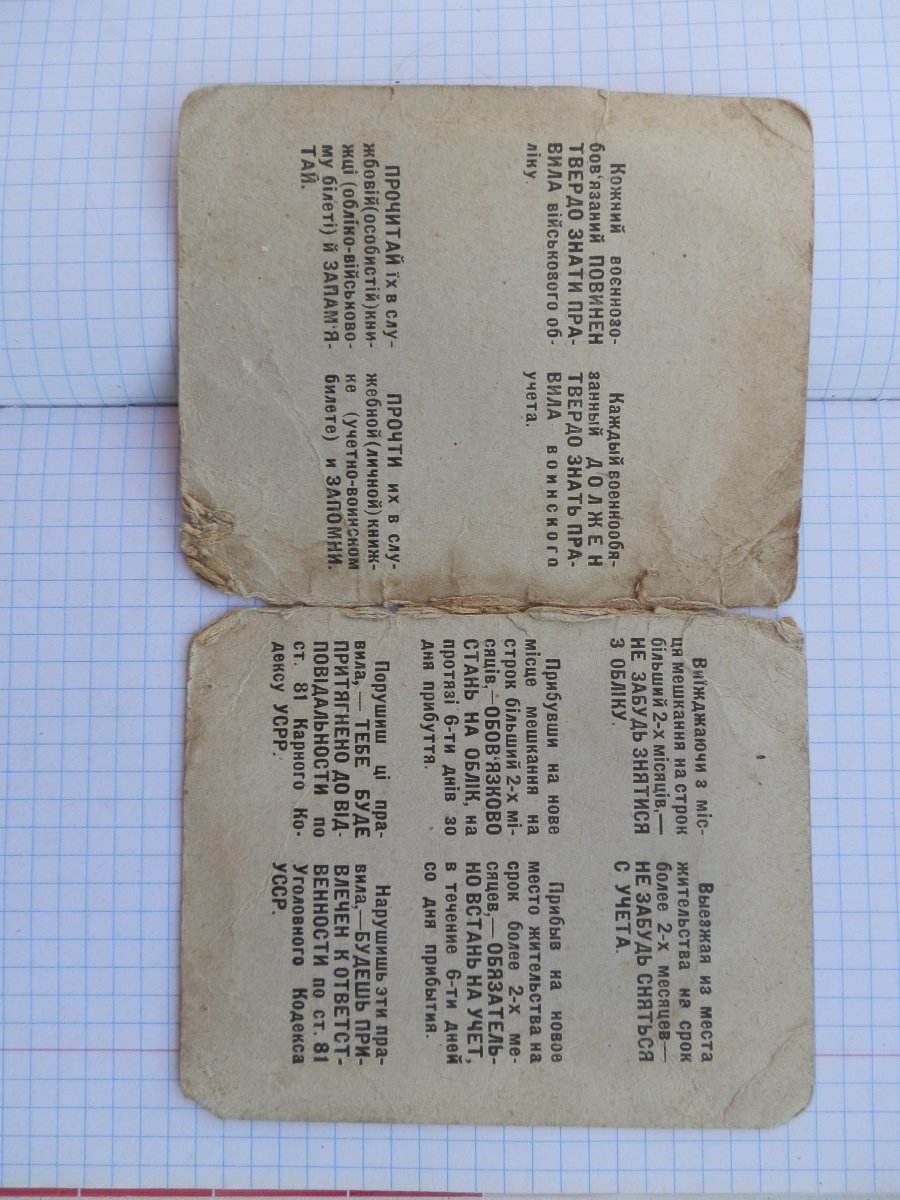 Кожний воєннозо-
бов'язаний ПОВИНЕН
ТВЕРДО ЗНАТИ ПРА-
ВИЛА військового об-
ліку.
ПРОЧИТАЙ їх в слу-
жбовій (особистій) кни-
жці (обліко-військово-
му білеті) й ЗАПАМ'Я-
ТАЙ.
Каждый военнообя-
занный ДОЛЖЕН
ТВЕРДО ЗНАТЬ ПРА-
ВИЛА воинского
учета.
ПРОЧТИ их в слу-
жебной (личной) книж-
ке (учетно-воинском
билете) и ЗАПОМНИ.
Виїжджаючи з міс-
ця мешкання на строк
більший 2-х місяців,—
НЕ ЗАБУДЬ ЗНЯТИСЯ
З ОБЛІКУ.
Прибувши на нове
місце мешкання на
строк більший 2-х мі-
сяців,—ОБОВ'ЯЗКОВО
СТАНЬ НА ОБЛІК, на
протязі 6-ти днів зо
дня прибуття.
Порушиш ці пра-
вила,— ТЕБЕ БУДЕ
ПРИТЯГНЕНО ДО ВІД-
ПОВІДАЛЬНОСТИ по
ст. 81 Карного Ко-
дексу УСРР.
Выезжая из места
жительства на срок
более 2-х месяцев—
НЕ ЗАБУДЬ СНЯТЬСЯ
С УЧЕТА.
Прибыв на новое
место жительства на
срок более 2-х ме-
сяцев,— ОБЯЗАТЕЛЬ-
НО ВСТАНЬ НА УЧЕТ,
в течение 6-ти дней
со дня прибытия.
Нарушишь эти пра-
вила,—БУДЕШЬ ПРИ-
ВЛЕЧЕН К ОТВЕТСТ-
ВЕННОСТИ по ст. 81
Уголовного Кодекса
УССР.